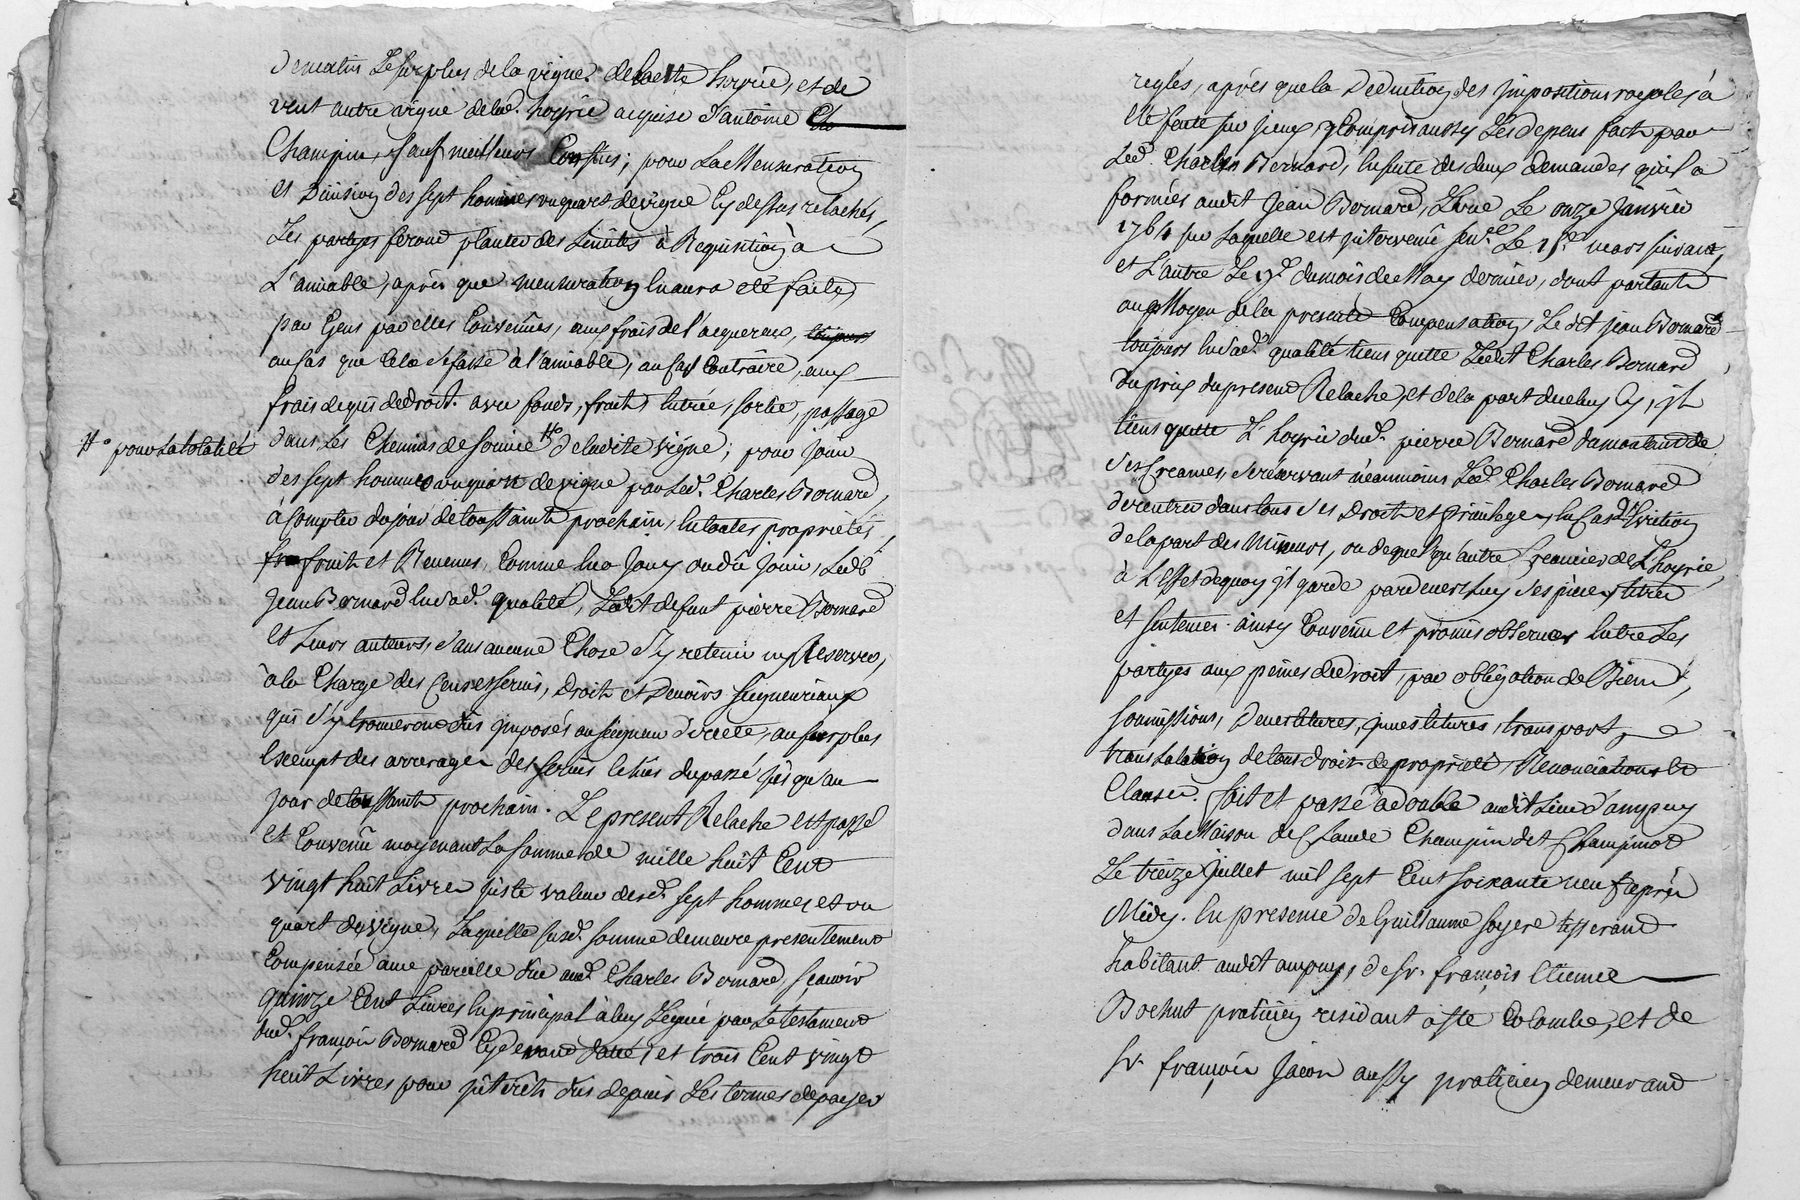 de matin Le surplus de la vigne de laditte hoyrie, et de
vent autre vigne delad. hoyrie acquise d'antoine
Champin, sauf meilleurs Confins; pour La Mensuration
et Division des sept hommes un quart de vigne Cy dessus relachés,
Les partyes feront planter des Limittes à Requisition à
L'amiable, après que mensuration en aura eté faitte
par Gens par elles Convenües, aux frais de l'acquereur,
au Cas que Cela se fasse à l'amiable, au Cas Contraire, aux
frais de qui de droit. avec fonds, fruits, entrée, sortie, passage
dans Les Chemins de service # de ladite vigne; pour jouir
# pour La totalité
des sept hommes un quart de vigne par Led. Charles Bernard,
à Compter du jour de toussaints prochain, en toutes proprietés,
fruits et Revenus, Comme en a jouy ou dû jouir, Ledt
Jean Bernard en sad. qualité, Ledit defunt pierre Bernard
et Leurs auteurs, sans aucune Chose s'y retenir ny Reserver,
à la Charge des Cens et servis, Droits et Devoirs seigneuriaux
qui s'y trouveront dûs imposés au seigneur direct, au surplus
Exempt des arrerages des servis échus du passé jusqu'au
jour de toussaints prochain. Le present Relache est passé
et Convenû moyenant La somme de mille huit Cent
vingt huit Livres juste valeur desd. sept hommes et un
quart de vigne, Laquelle susd. somme demeure presentement
Compensée à une pareille due aud. Charles Bernard, scavoir
quinze Cent Livres en principal à luy Leguée par Le testament
dud. françois Bernard Cy devant datté, et trois Cent vingt
huit Livres pour interêts dus depuis Les termes de payer
reglés, après que la Deduction des impositions royales a
eté faite sur iceux, y Compris aussy Les depens faits par
Led. Charles Bernard, ensuite des deux demandes qu'il a
formées audit Jean Bernard, L'une Le onze Janvier
1764 sur Laquelle est intervenüe sence Le mars suivant,
et L'autre Le du mois de May dernier, dont partant
au Moyen de la presente Compensation, Ledit jean Bernard
toujours en sad. qualité tiens quitte Ledit Charles Bernard
du prix du present Relache, et de la part de luy Cy, il
tiens quitte L'hoyrie dud. pierre Bernard du montant de
ses Creances, se réservant néanmoins Led. Charles Bernard
de rentrer dans tous ses Droits et privilege, en Cas d'Eviction
de la part des Mineurs, ou de quelqu'autre Creancier de L'hoyrie,
à L'Effet de quoy il garde pardevers Luy ses pieces, titres
et sentences. ainsy Convenu et promis observer Entre Les
partyes aux peines de droit, par obligation de Biens,
soumissions, devestitures, investitures, transport,
translation de tous droits de propriété, Renonciations et
Clauses. fait et passé à double audit Lieu d'ampuy
dans La Maison de Claude Champin dit Champinot
Le treize Juillet mil sept Cent soixante neuf après
Midy. En presence de Guillaume soyere tisserand
habitant audit ampuy, de Sr. françois Etienne
Bochut praticien résidant à Ste Colombe, et de
Sr. françois Jacon aussy praticien demeurant